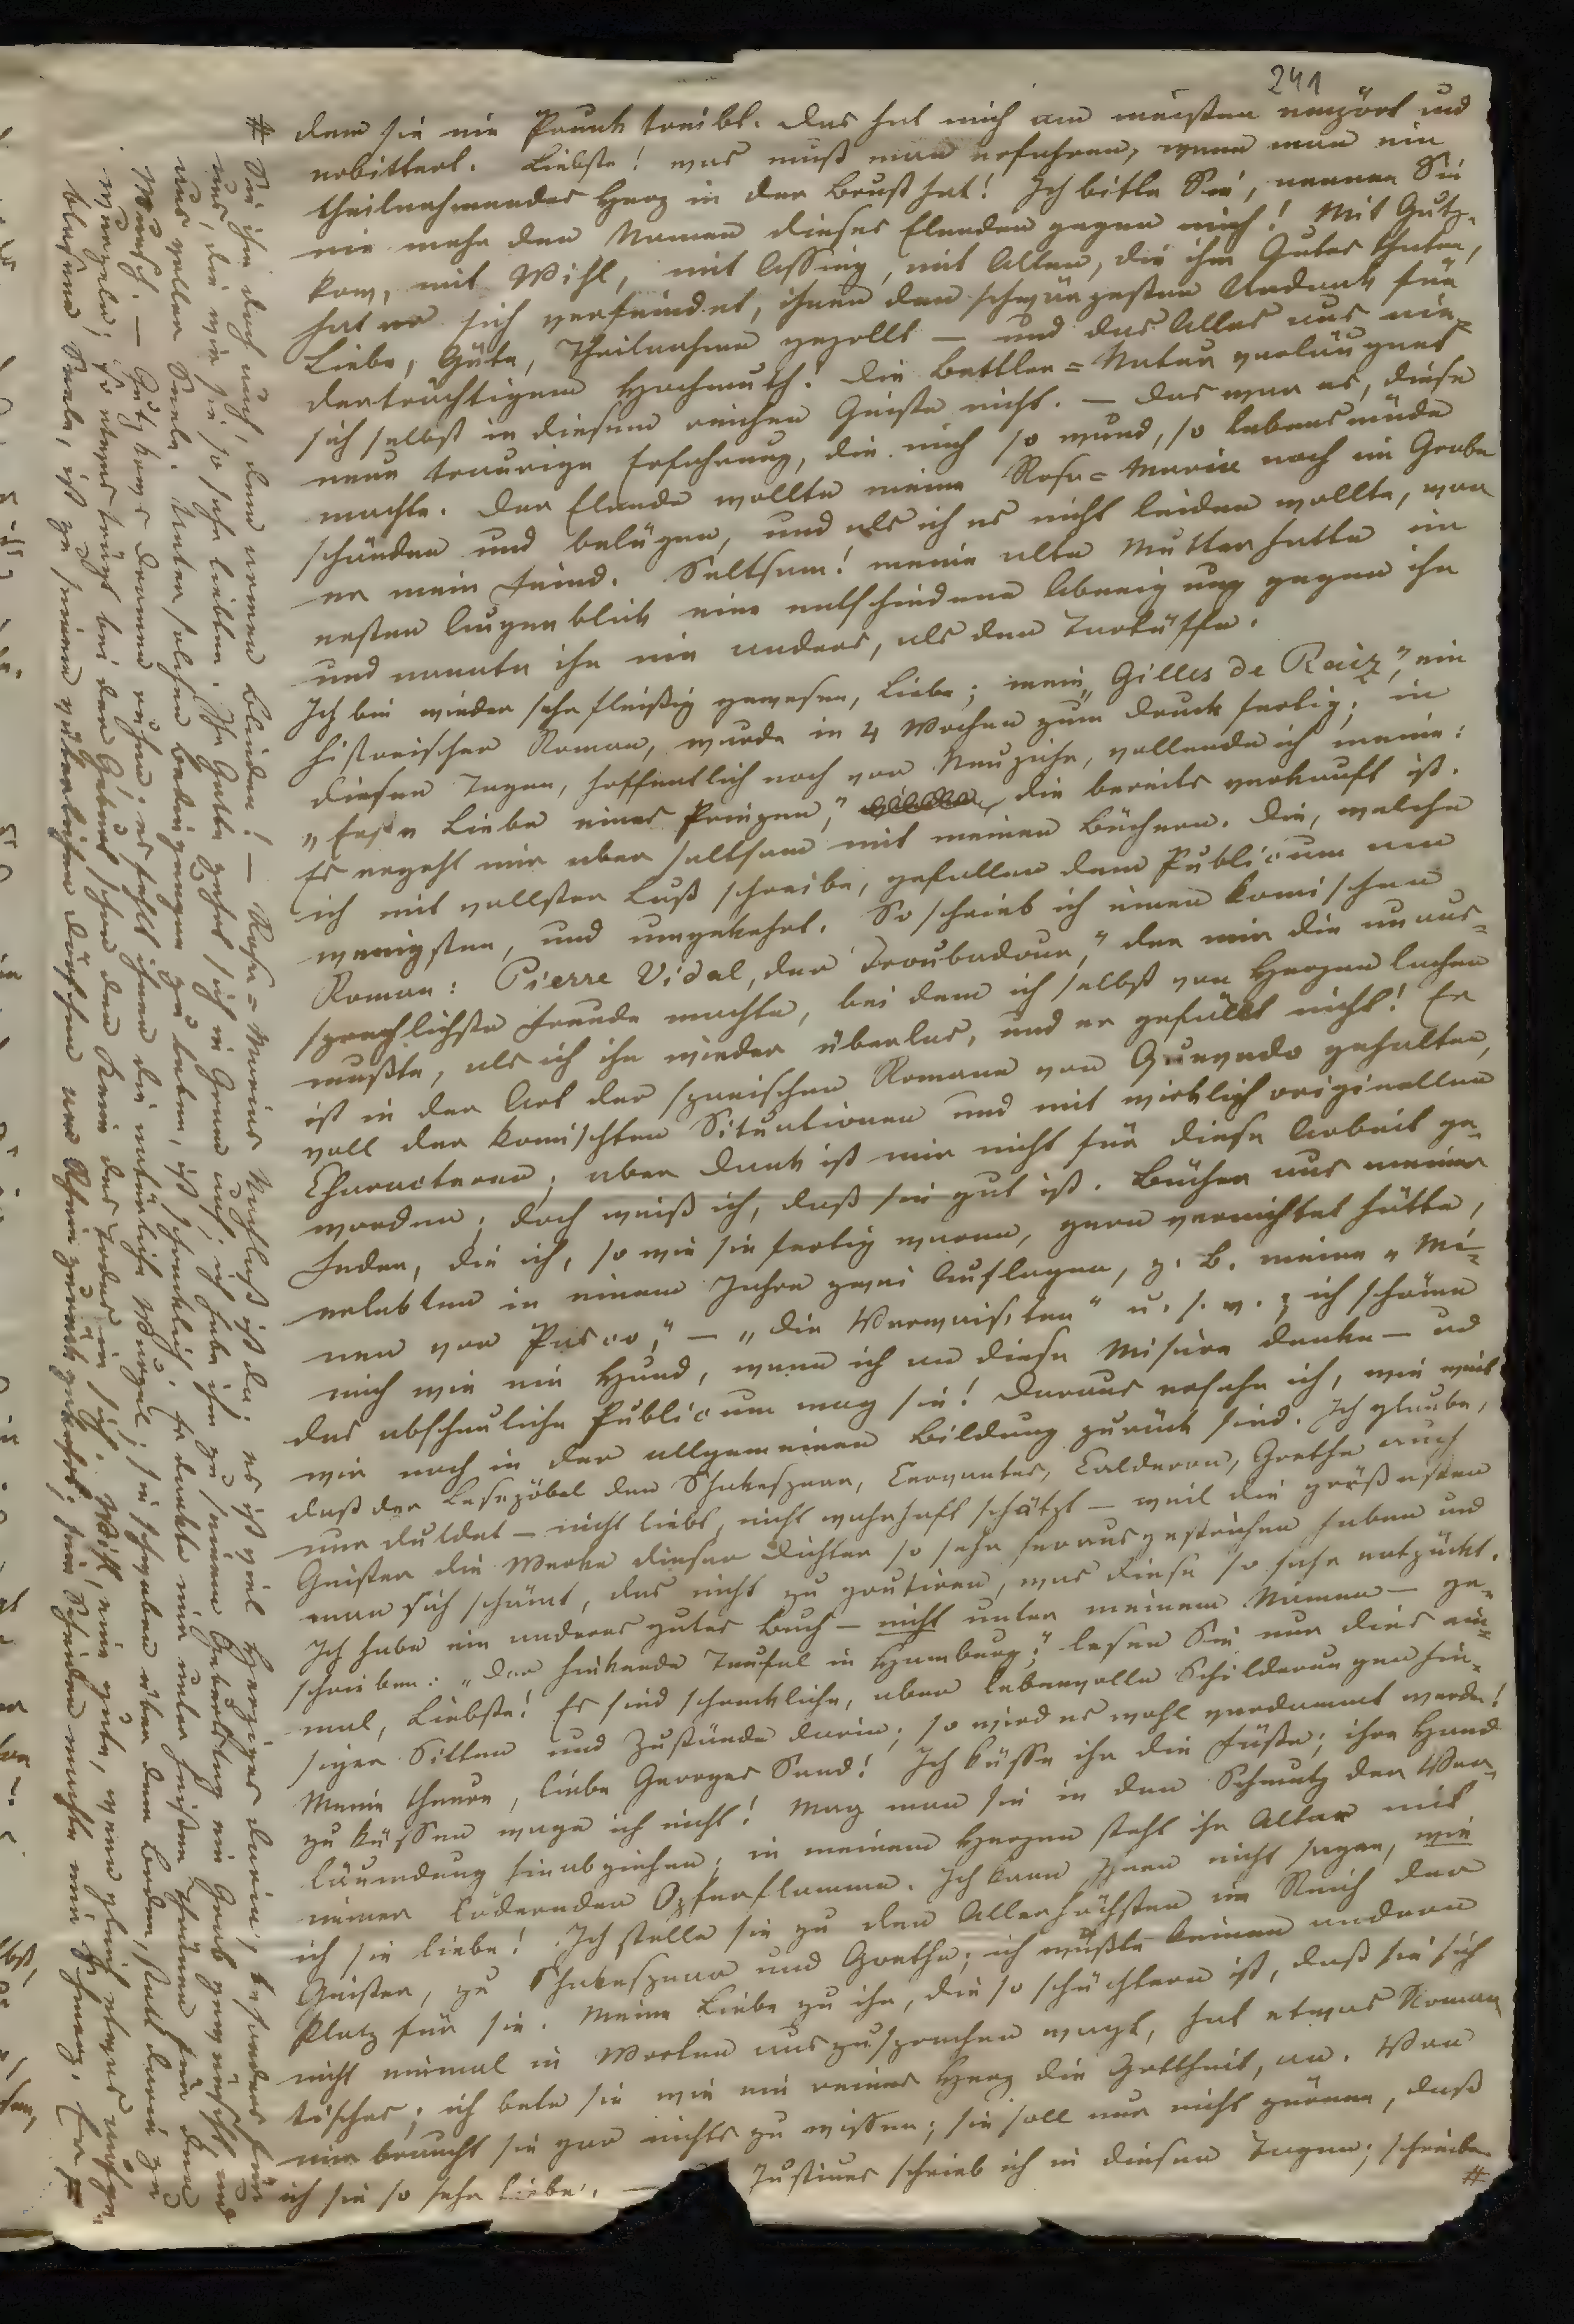 241
dem sie nie Prunk treibt. Das hat mich am meisten empört und
erbittert. Liebste! was muß man erfahren, wenn man ein
theilnehmendes Herz in der Brust hat! Ich bitte Sie, nennen Sie
nie mehr den Namen dieses Elenden gegen mich! Mit Gutz-
kow, mit Wihl, mit Assing, mit Allen, die ihm Gutes thaten,
hat er sich verfeindet, ihnen den schwärzesten Undank für
Liebe, Güte, Theilnahme gezollt — und das Alles aus nie-
derträchtigem Hochmuth. Die Bettler-Natur verläugnet
sich selbst in diesem reichen Geiste nicht. — Das war es, diese
neue traurige Erfahrung, die mich so wund, so lebensmüde
machte. Der Elende wollte meine Rosa-Maria noch im Grabe
schänden und belügen, und als ich es nicht leiden wollte, war
er mein Feind. Seltsam! meine alte Mutter hatte im
ersten Augenblick eine entschiedene Abneigung gegen ihn
und nannte ihn nie anders, als den Tartüffe.
Ich bin wieder sehr fleißig gewesen, Liebe; mein „Gilles de Raiz", ein
historischer Roman, wurde in 4 Wochen zum Druck fertig; in
diesen Tagen, hoffentlich noch vor Neujahr, vollende ich meine:
„Erste Liebe eines Prinzen," die bereits verkauft ist.
Es ergeht mir aber seltsam mit meinen Büchern. Die, welche
ich mit vollster Lust schreibe, gefallen dem Publicum am
wenigsten, und umgekehrt. So schrieb ich einen komischen
Roman: Pierre Vidal, der Troubadour," der mir die unaus-
sprechlichste Freude machte, bei dem ich selbst von Herzen lachen
mußte, als ich ihn wieder überlas, und er gefällt nicht! Er
ist in der Art der spanischen Romane von Quevedo gehalten,
voll der komischten Situationen und mit wirklich originellen
Characteren; aber Dank ist mir nicht für diese Arbeit ge-
worden; doch weiß ich, daß sie gut ist. Bücher aus meiner
Feder, die ich, so wie sie fertig waren, gern vernichtet hätte,
erlebten in einem Jahre zwei Auflagen, z. B. meine „Mi-
nen von Pasco," — „die Verwaisten" u. s. w.; ich schäme
mich wie ein Hund, wenn ich an diese Misère denke — und
das abscheuliche Publicum mag sie! Daraus ersehe ich, wie weit
wir noch in der allgemeinen Bildung zurück sind. Ich glaube,
daß der Lesepöbel den Shakespear, Cervantes, Calderon, Goethe auch
nur duldet — nicht liebt, nicht wahrhaft schätzt — weil die größesten
Geister die Werke dieser Dichter so sehr herausgestrichen haben und
man sich schämt, das nicht zu goutiren, was diese so sehr entzückt.
Ich habe ein anderes gutes Buch — nicht unter meinem Namen — ge-
schrieben: „Der hinkende Teufel in Hamburg;" lesen Sie nur dies ein-
mal, Liebste! Es sind schreckliche, aber lebenvolle Schilderungen hie-
siger Sitten und Zustände darin; so wird es wohl verdammt werden!
Meine theure, liebe Georges Sand! Ich küsse ihr die Füße; ihre Hand
zu küssen wage ich nicht! Mag man sie in den Schmutz der Ver-
läumdung hinabziehen; in meinem Herzen steht ihr Altar mit
immer lodernder Opferflamme. Ich kann Ihnen nicht sagen, wie
ich sie liebe! Ich stelle sie zu den Allerhöchsten im Reich der
Geister, zu Shakespear und Goethe; ich wüßte keinen andern
Platz für sie. Meine Liebe zu ihr, die so schüchtern ist, daß sie sich
nicht einmal in Worten auszusprechen wagt, hat etwas Roman-
tisches; ich bete sie wie ein reines Herz die Gottheit, an. Von
mir braucht sie gar nichts zu wissen; sie soll nur nicht zürnen, daß
ich sie so sehr liebe. — Justinus schrieb ich in diesen Tagen; schreiben
#
# Sie ihm doch auch, dem armen Blinden! — Rosa-Marias Nachlaß ist da. es ist viel Herziges darin, besonders für
uns, die wir sie so sehr liebten. Ihr Gatte zehrt sich in Gram auf; ich habe ihm zu seinem Geburtstag ein Grab gewünscht und
aus voller Seele. Unter solchen Bedingungen zu leben, ist schrecklich. Er dankte mir unter heißen Thränen für den
Wunsch. — Gutzkows Dramen ; es fehlt ihnen die natürliche Wurzel; sie schweben über dem Boden, statt darin zu
wurzeln; so etwas trägt bei der Geburt schon den Keim des Todes in sich. Wihl, eine gute, wenn gleich etwas aufge-
blasene Seele, ist zu seinem väterlichen am Rhein zurückgekehrt; sein Scheiden machte mir Schmerz. Er #